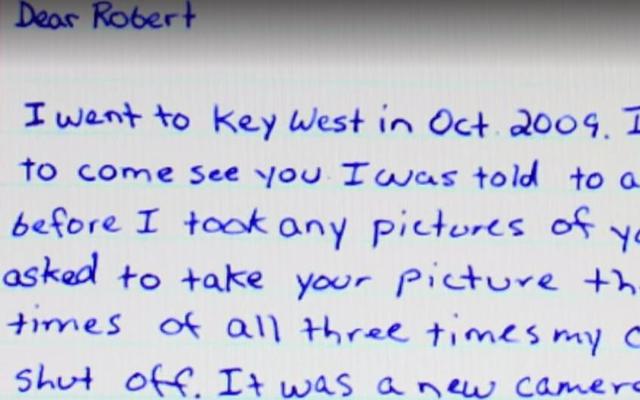 Dear Robert
I went to Key West in Oct. 2009. I
to come see you I was told to a
before I took any pictures of yo
asked to take your picture th
times of all three times my c
shut off. It was a new camera